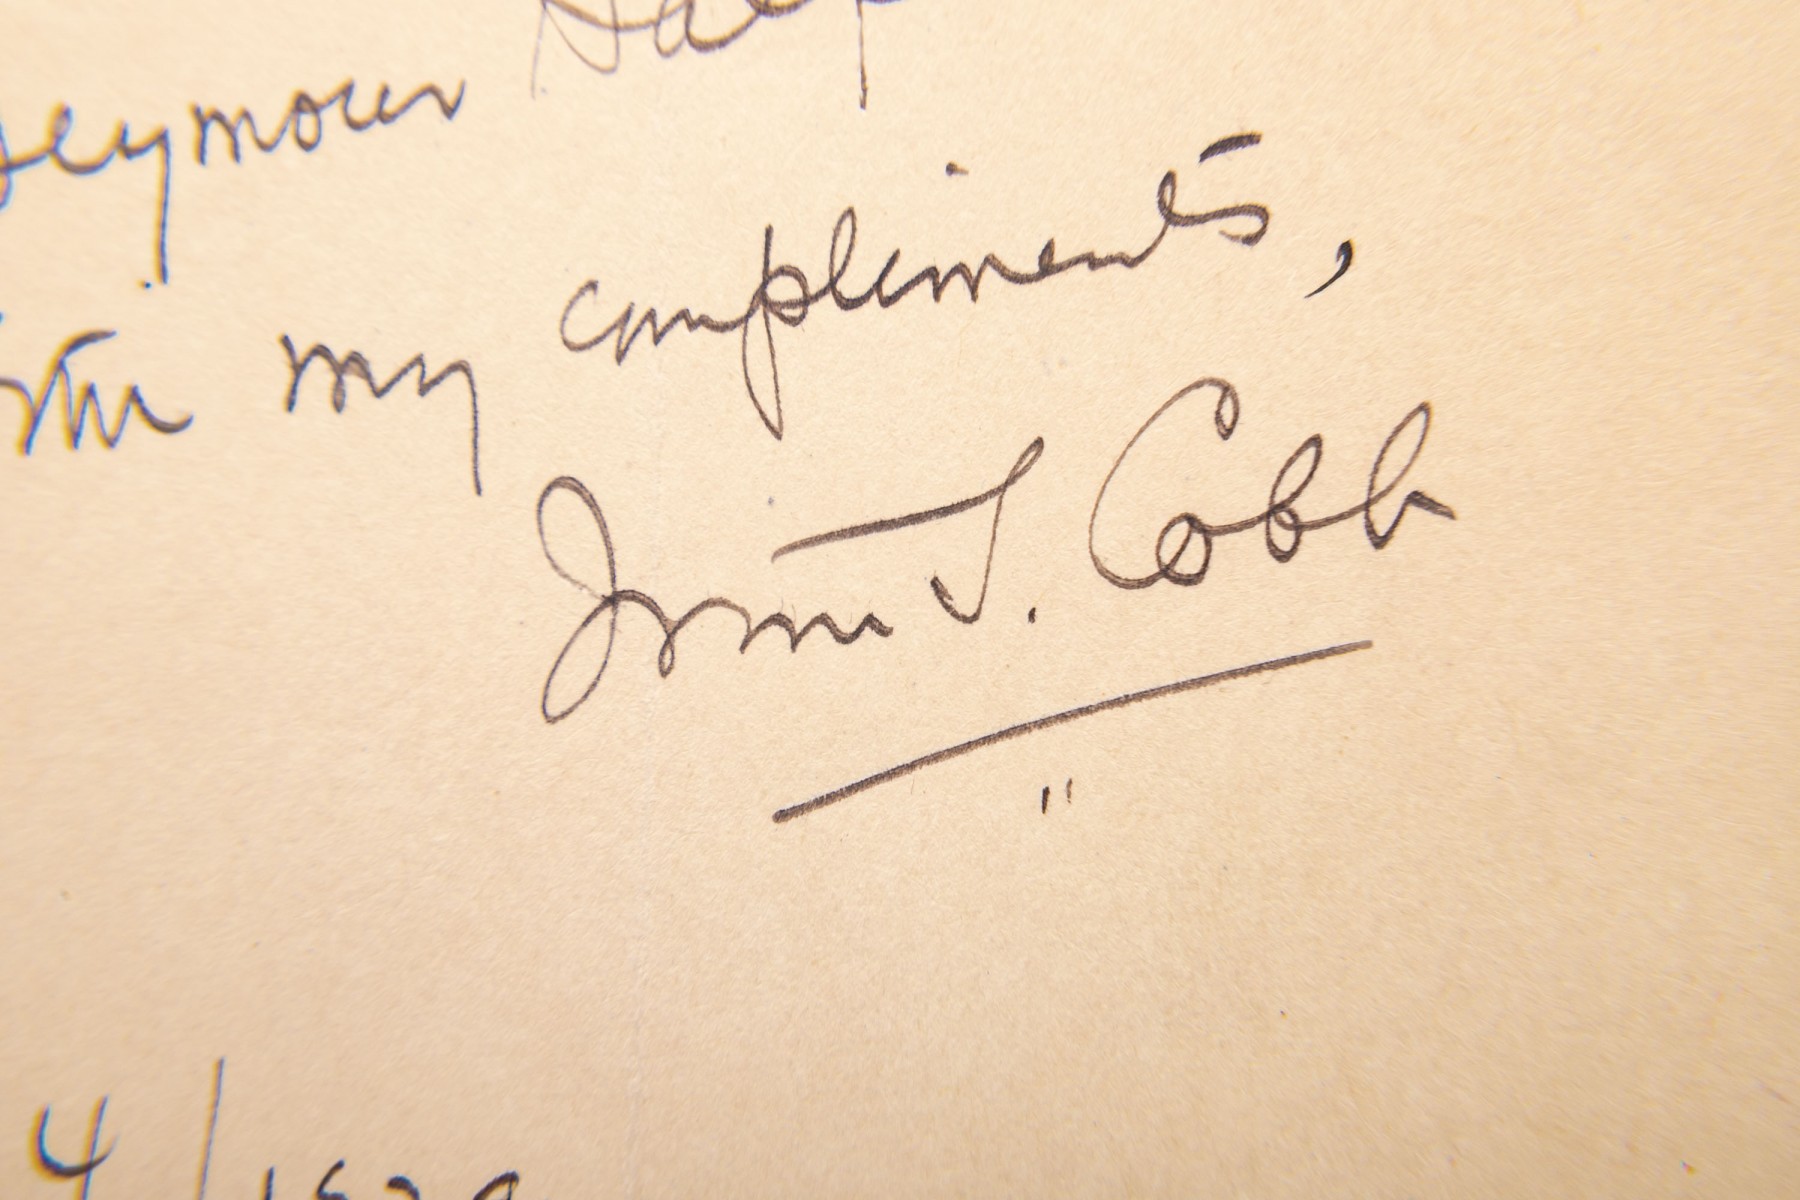 Seymour
my compliments,
Irvin S. Cobb
"
4/1929